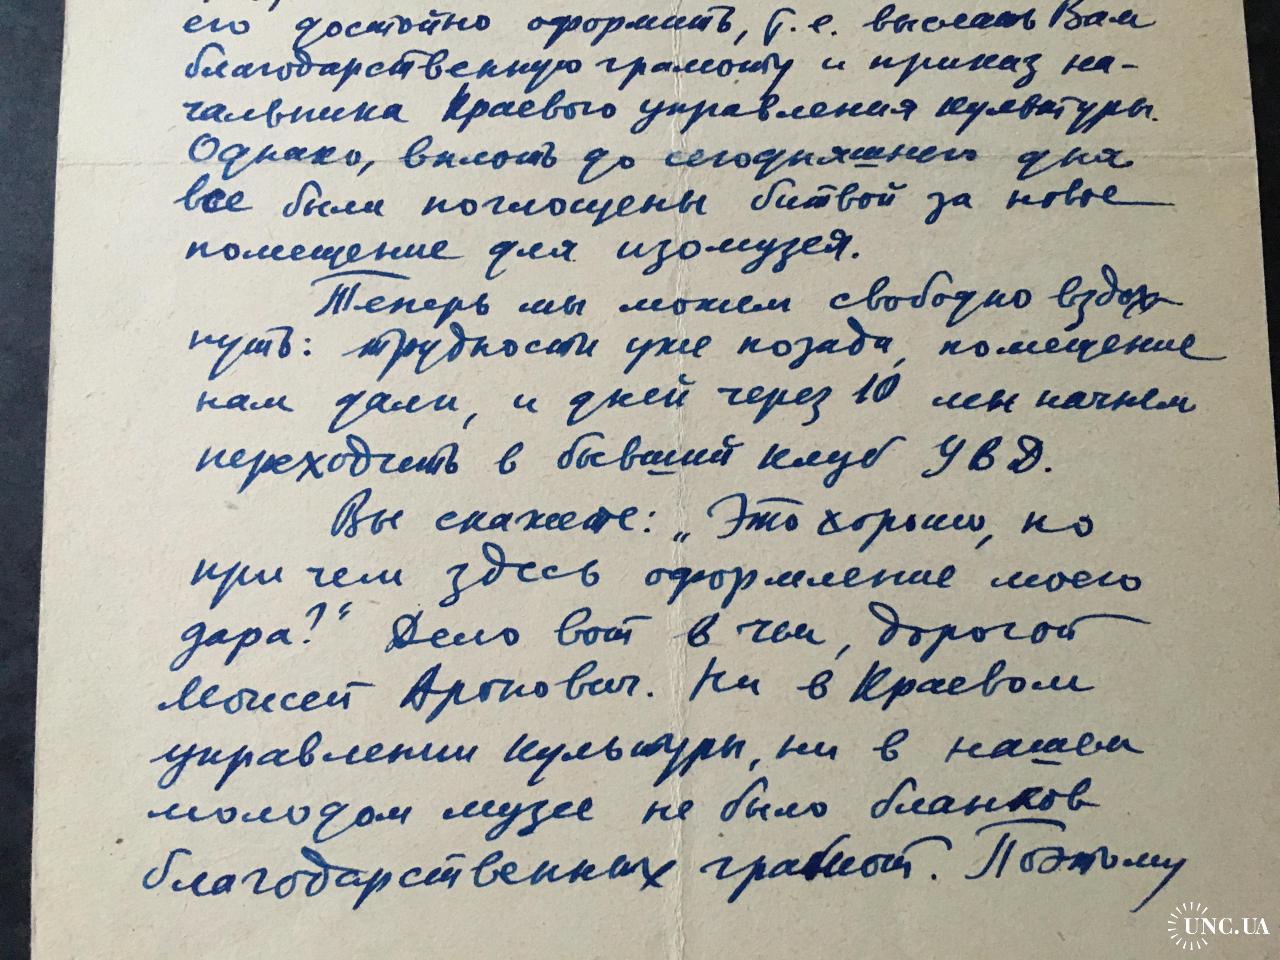 его достойно оформить, т.е. выслать Вам
благодарственную грамоту и приказ на-
чальника Краевого управления культуры.
Однако, вплоть до сегодняшнего дня
все были поглощены битвой за новое
помещение для изомузея.
Теперь мы можем свободно вздох-
нуть: трудности уже позади, помещение
нам дали, и дней через 10 мы начнем
переходить в бывший клуб УВД.
Вы скажете: „Это хорошо, но
при чем здесь оформление моего
дара?“ Дело вот в чем, дорогой
Моисей Аронович. Ни в Краевом
управлении культуры, ни в нашем
молодом музее не было бланков
благодарственных грамот. Поэтому
UNC.UA